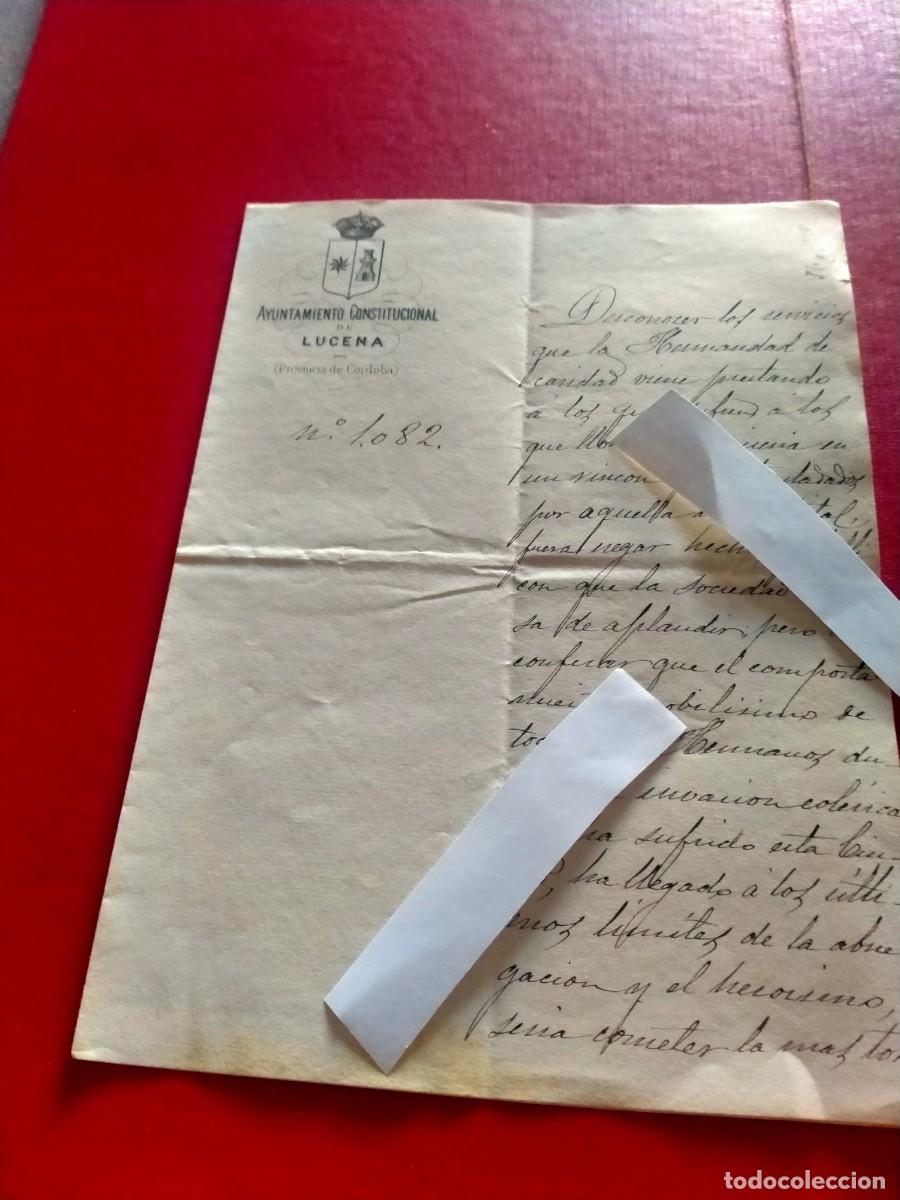 AYUNTAMIENTO CONSTITUCIONAL
DE
LUCENA
(Provincia de Cordoba)
nº 1.082.
Desconocer los servicios
que la Hermandad de
caridad viene prestando
á los á los
que en
un rincon
por aquella
fuera negar
con que la sociedad
sa de aplaudir; pero
confesar que el comporta
nobilisimo de
Hermanos du-
invacion colérica
sufrido esta Ciu-
ha llegado á los últi-
mos límites de la abne
gacion y el heroismo,
seria cometer la mas
todocoleccion